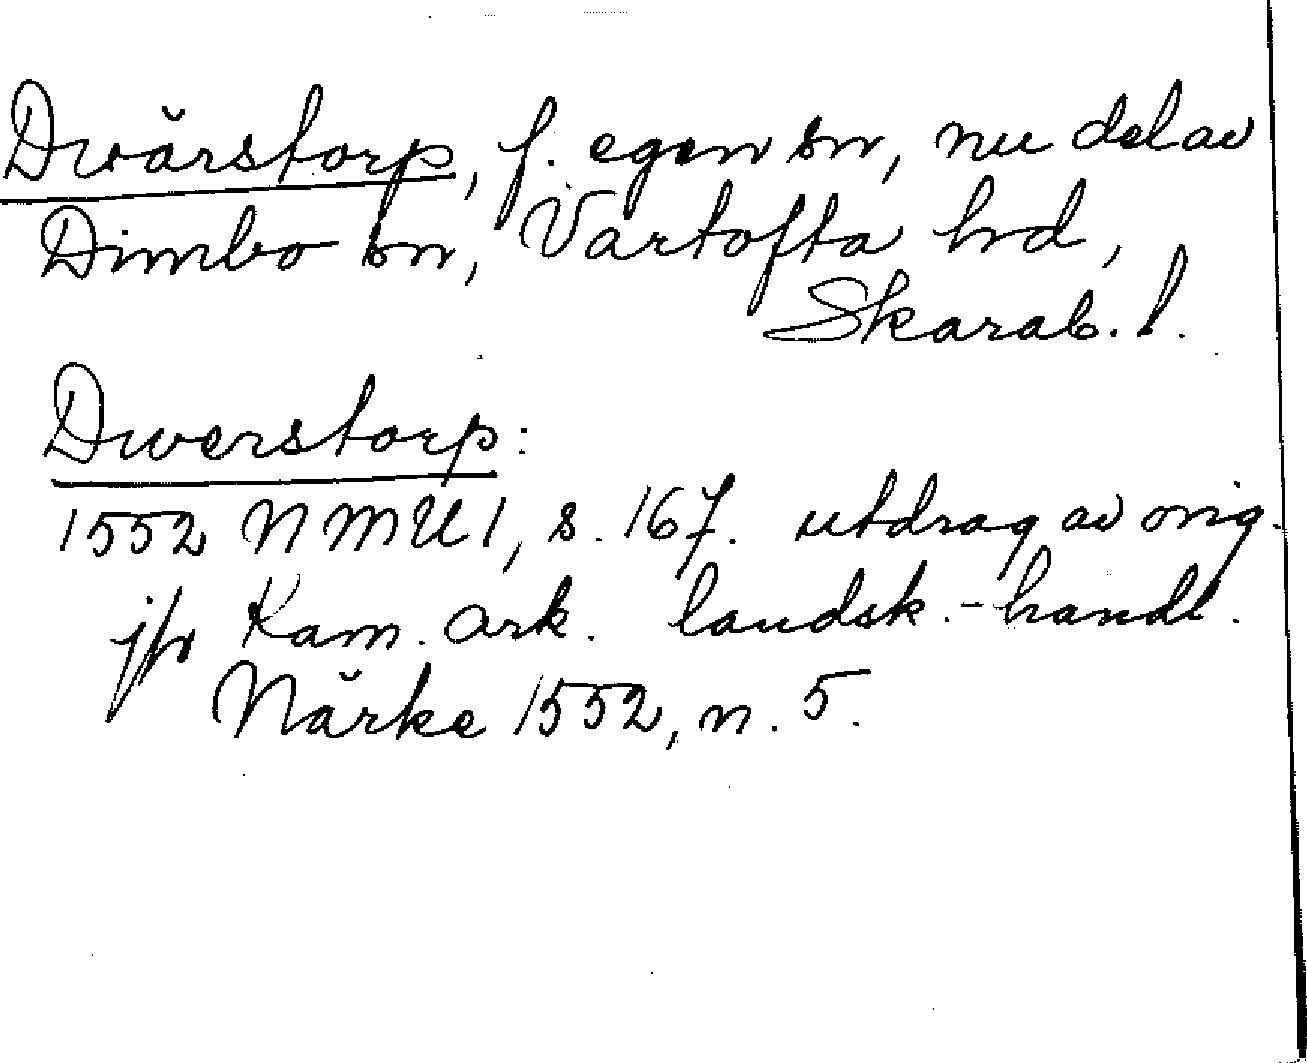 Dwärstorp, f. egen sn, nu del av
Dimbo sn, Vartofta hd,
Skarab. l.
Dwerstorp:
1552 NMU 1, s. 167. utdrag av orig.
jfr Kam. ark. landsk.-handl.
Närke 1552, n. 5.